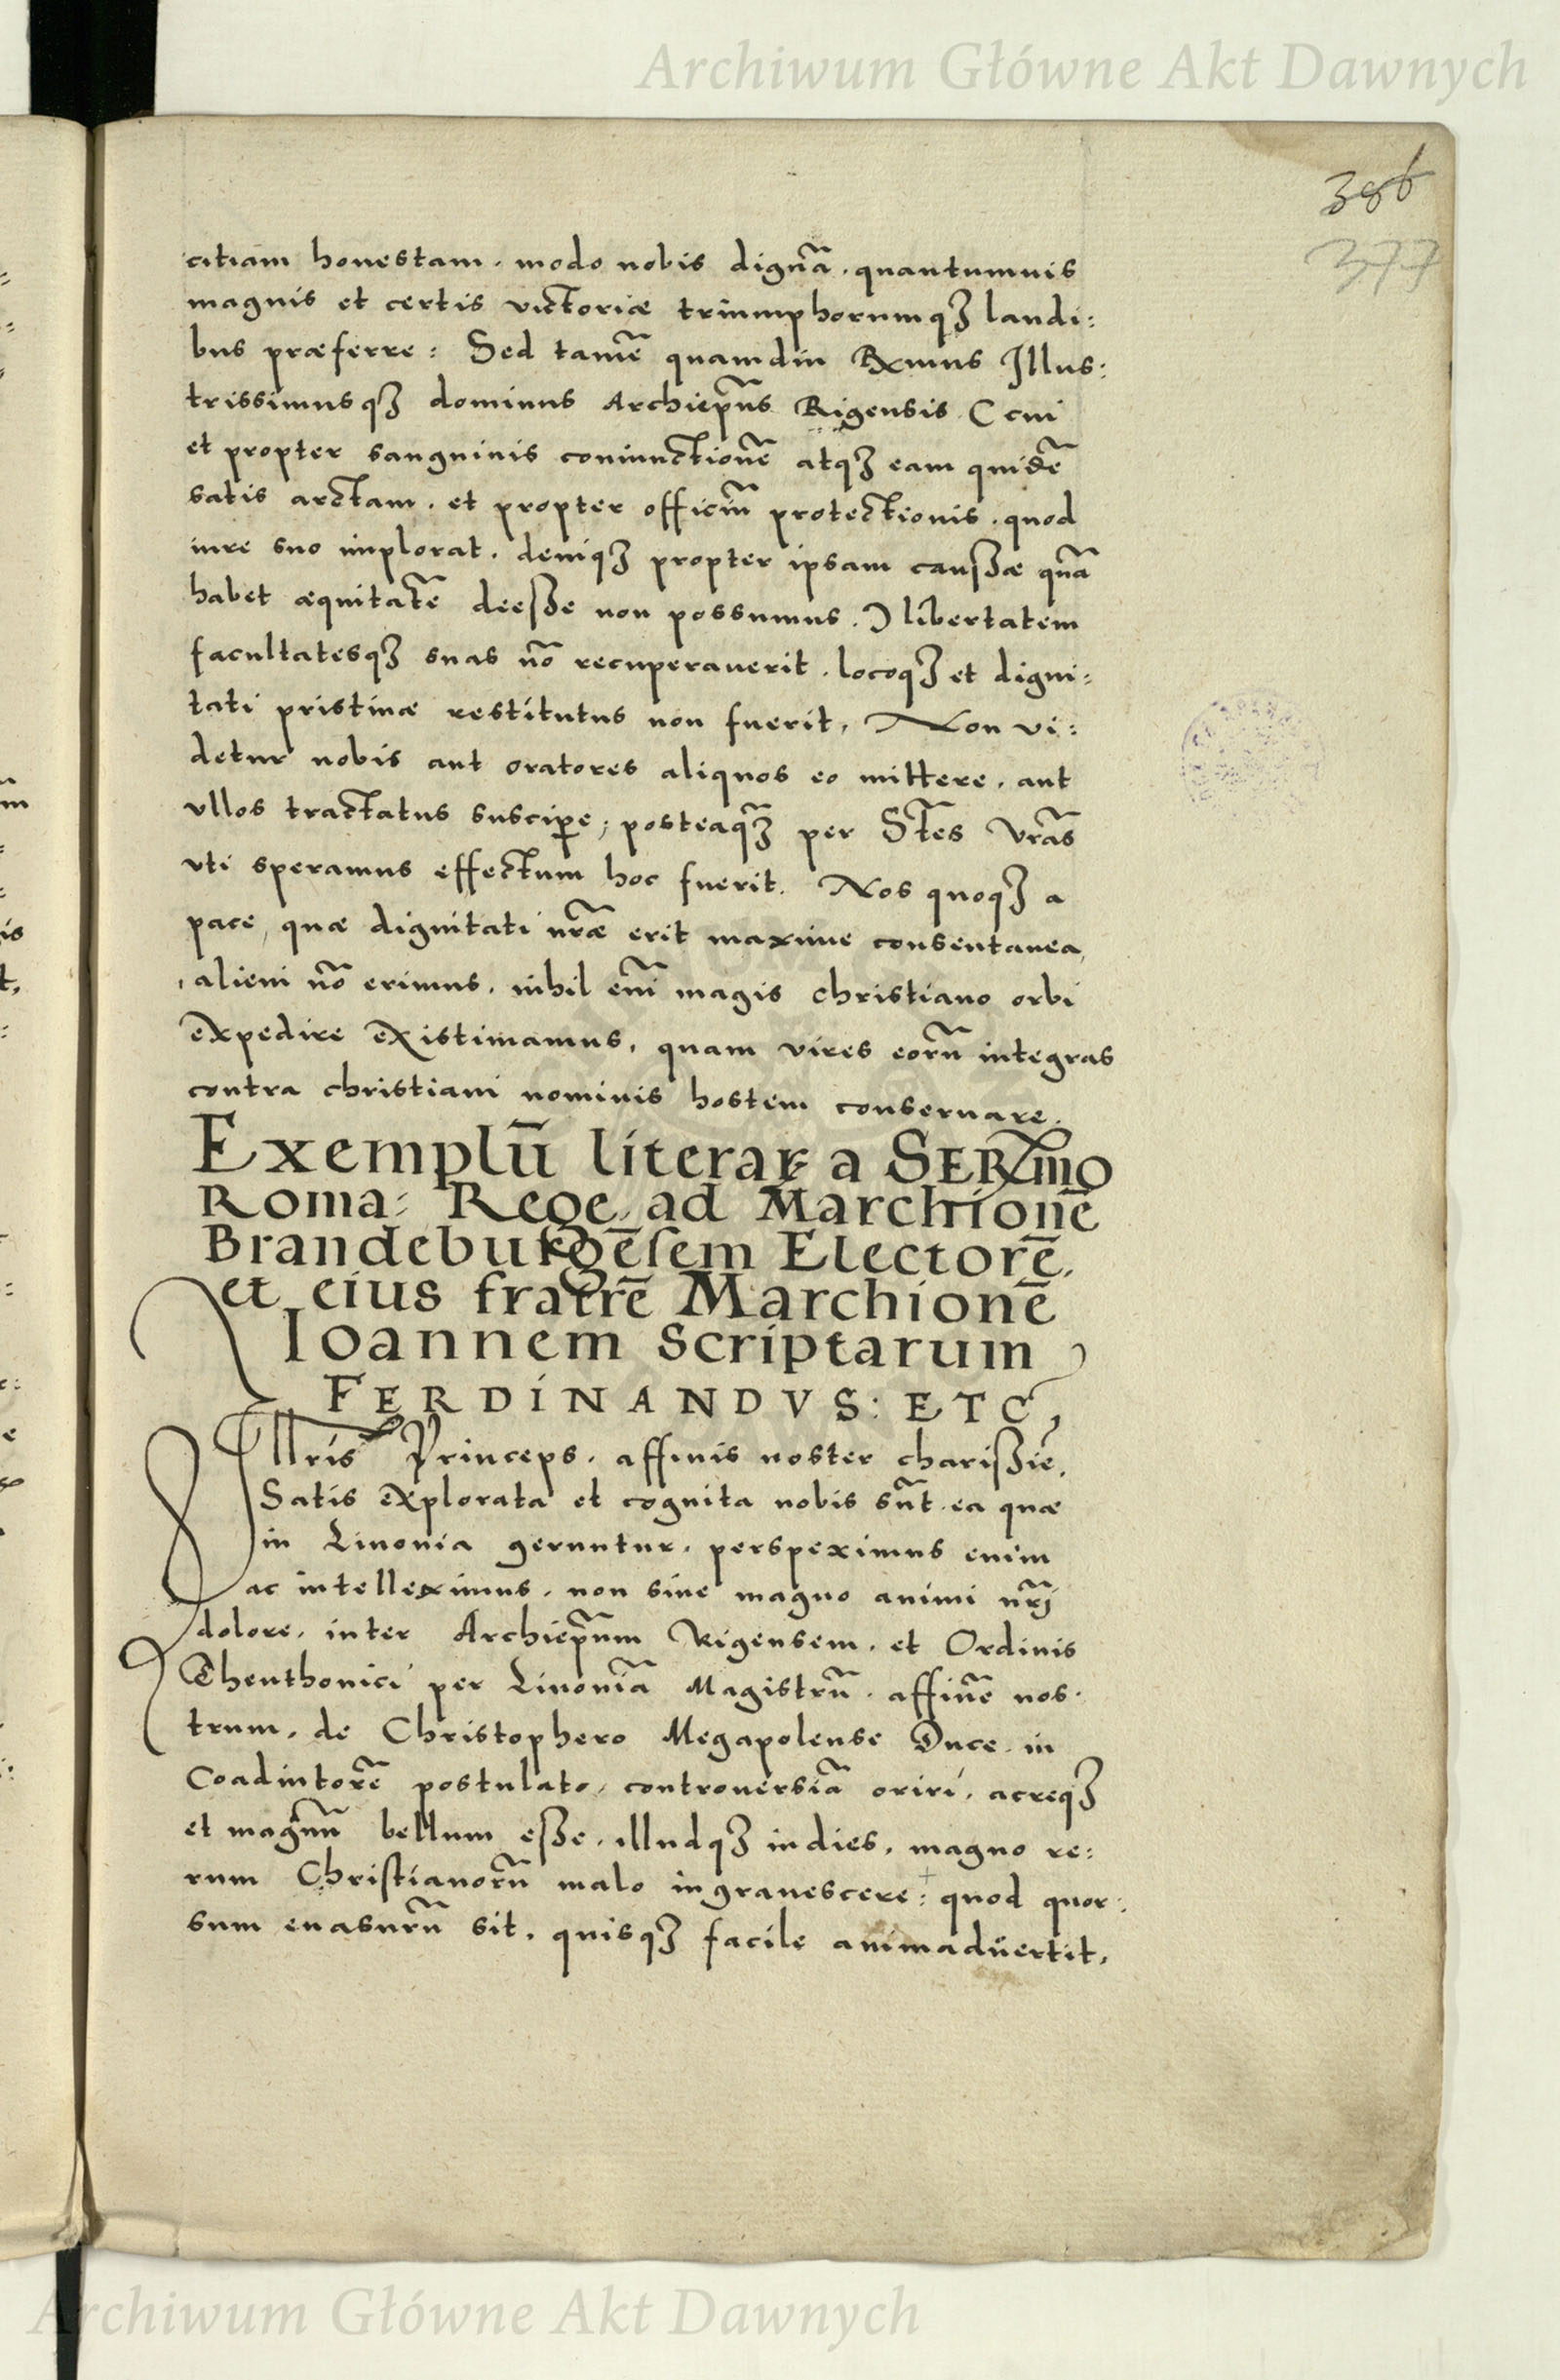 Archiwum Główne Akt Dawnych
386
377
citiam honestam. modo nobis dignã. quantumuis
magnis et certis victoriæ triumphorumqꝫ laudi:
bus præferre: Sed tamẽ quamdiu Rxmus Illus:
trissimusqꝫ dominus Archiepũs Rigensis (cui
et propter sanguinis coniunctionẽ atqꝫ eam quidẽ
satis arctam. et propter officiũ protectionis. quod
iure suo implorat. deniqꝫ propter ipsam causßæ quã
habet æquitatẽ deesße non possumus.) libertatem
facultatesqꝫ suas nõ recuperauerit. locoqꝫ et digni:
tati pristinæ restitutus non fuerit, Non vi:
detur nobis aut oratores aliquos eo mittere. aut
vllos tractatus suscipe; posteaqꝫ̃ per S̃tes Vrãs
vti speramus effectum hoc fuerit. Nos quoqꝫ a
pace, quæ dignitati nr̃æ erit maxime consentanea,
alieni nõ erimus. nihil em̃ magis christiano orbi
expedire existimamus, quam vires eorũ integras
contra christiani nominis hostem conseruare.
Exemplũ literaꝝ a SERxmo
Roma: Rege, ad Marchionẽ
Brandeburgẽsem Electorẽ,
et eius fratrẽ Marchionẽ
Ioannem scriptarum
FERDINANDVS: ETC,
Illris Princeps. affinis noster charisßiẽ,
Satis explorata et cognita nobis sũt ea quæ
in Liuonia geruntur. perspeximus enim
ac intelleximus. non sine magno animi nr̃j
dolore. inter Archiepũm Rigensem. et Ordinis
Theuthonici per Liuoniã Magistrũ. affinẽ nos.
trum. de Christophero Megapolense Duce. in
Coadiutorẽ postulato, controuersiã oriri, acreqꝫ
et magnũ bellum esße. illudqꝫ indies. magno re:
rum Christianorũ malo ingrauescere: quod quor:
sum euasurũ sit. quisqꝫ facile animaduertit,
Archiwum Główne Akt Dawnych